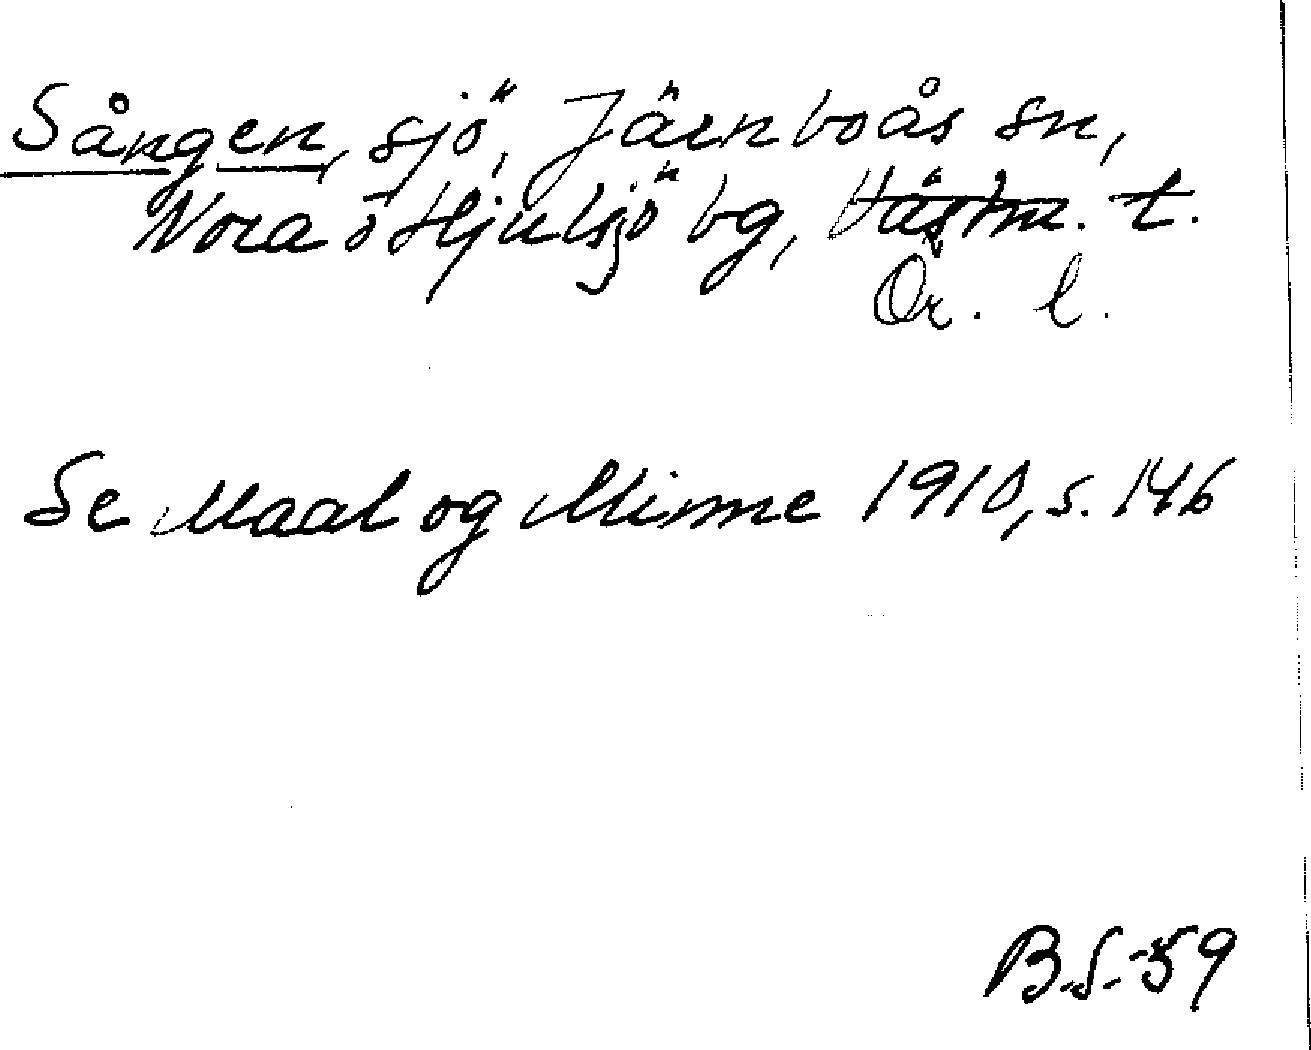 Sången, sjö, Järnboås sn,
Nora o Hjulsjö bg, Västm. l.
Ör. l.
Se Maal og Minne 1910, s. 146
B.S.-59